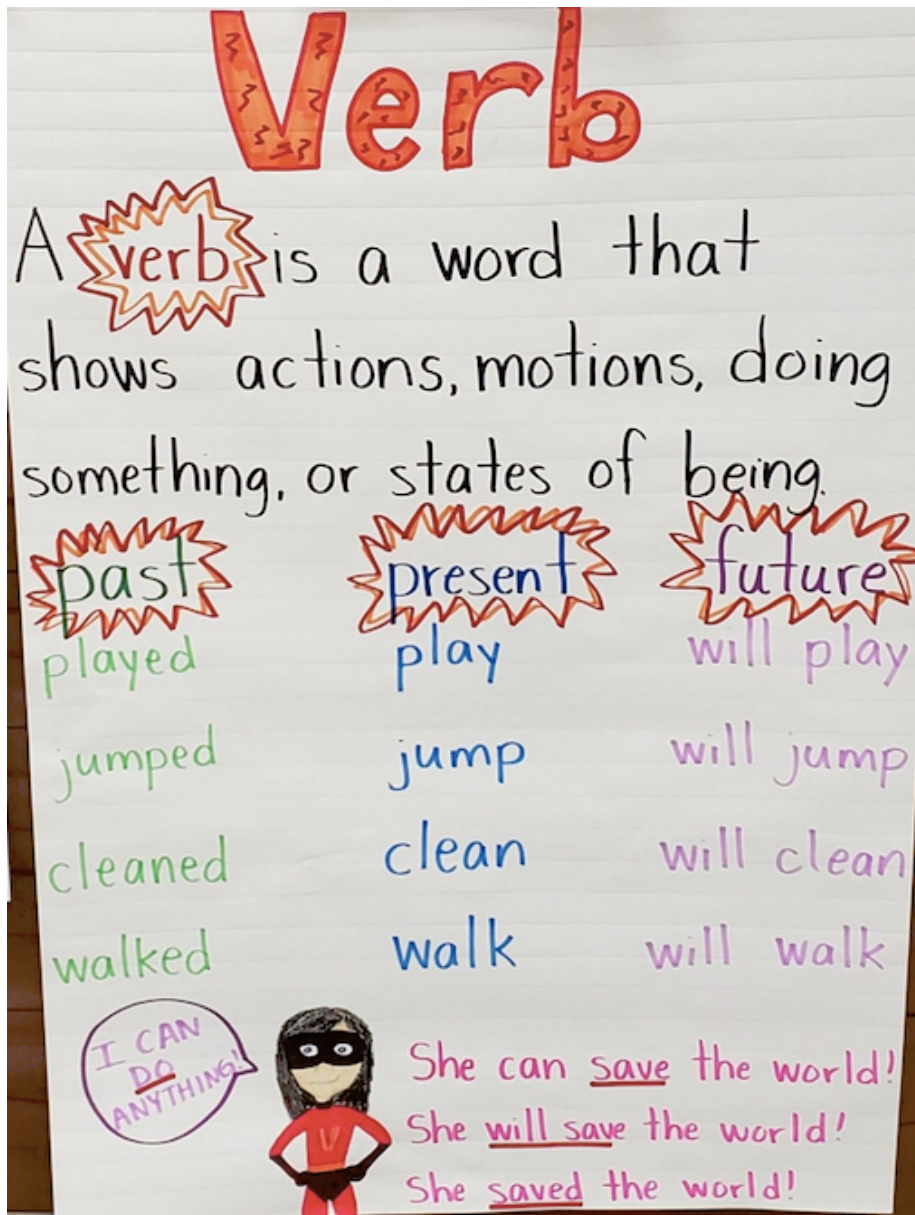 Verb
A verb is a word that
shows actions, motions, doing
something, or states of being.
past present future
played play will play
jumped jump will jump
cleaned clean will clean
walked walk will walk
I CAN
DO
ANYTHING!
V
She can save the world!
She will save the world!
She saved the world!